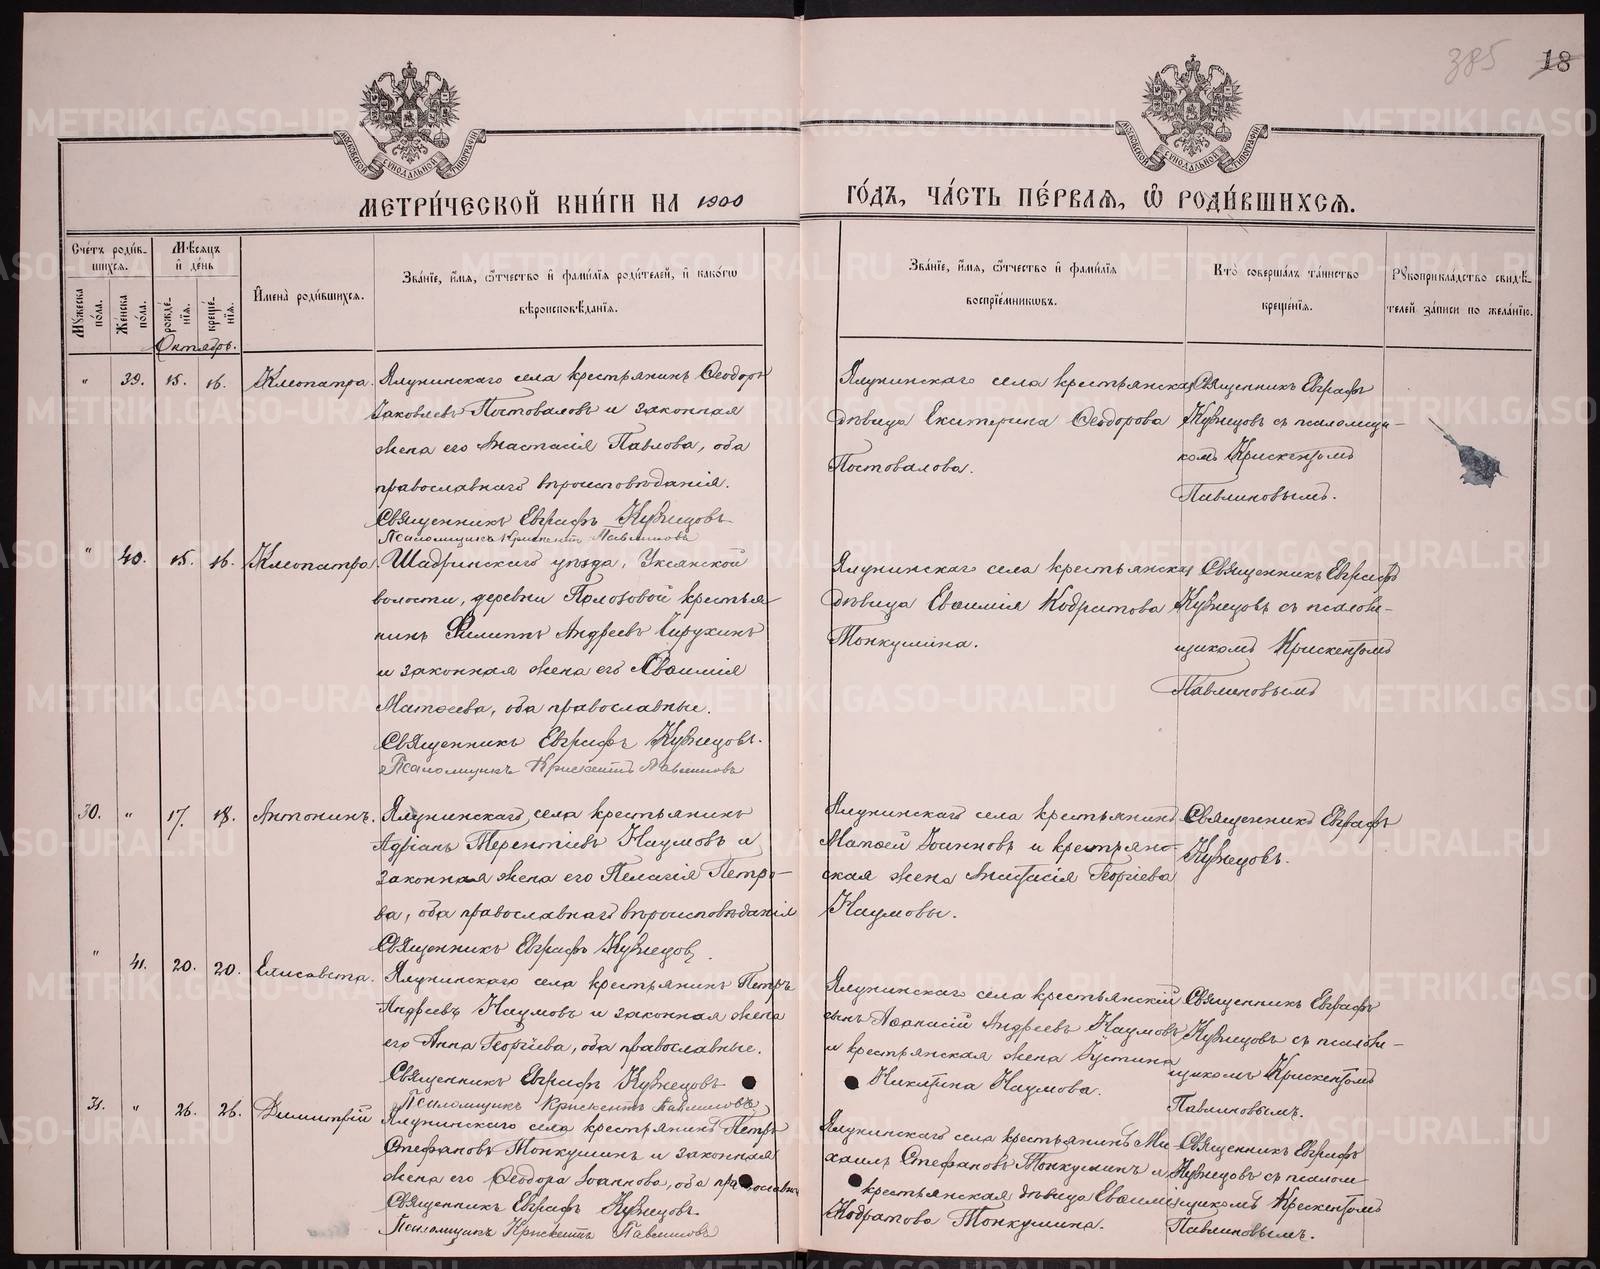 385 18
МЕТРИ́ЧЕСКОЙ КНИ́ГИ НА 1900
ГО́ДЪ, ЧА́СТЬ ПЕ́РВАЯ, Ѿ РОДИ́ВШИХСЯ.
Сче́тъ роди́в-
шихся.
Му́жеска по́ла.
Же́нска по́ла.
Мѣ́сяцъ
и҆ де́нь
рожде́-
нїя.
креще́-
нїя.
И҆мена̀ роди́вшихся.
Зва́нїе, и҆́мя, ѻ҆́тчество и҆ фами́лїя роди́телей, и҆ како́гѡ
вѣроисповѣ́данїя.
Зва́нїе, и҆́мя, ѻ҆́тчество и҆ фами́лїя
воспрїе́мникѡвъ.
Кто̀ соверша́лъ та́инство
креще́нїя.
Рꙋкоприкла́дство свидѣ́-
телей за́писи по жела́нїю.
Октябрь.
" 39. 15. 16. Клеопатра.
Ялунинскаго села крестьянинъ Ѳеодоръ
Іаковлевъ Постоваловъ и законная
жена его Анастасія Павлова, оба
православнаго вѣроисповѣданія.
Священникъ Евграфъ Кузнецовъ
Псаломщикъ Крискентъ Павлиновъ
Ялунинскаго села крестьянская
дѣвица Екатерина Ѳеодорова
Постовалова.
Священникъ Евграфъ
Кузнецовъ съ псаломщи-
комъ Крискентомъ
Павлиновымъ.
" 40. 15. 16. Клеопатра.
Шадринскаго уѣзда, Уксянской
волости, деревни Полозовой крестья-
нинъ Филиппъ Андреевъ
и законная жена его Евѳимія
Матѳеева, оба православные.
Священникъ Евграфъ Кузнецовъ.
Псаломщикъ Крискентъ Павлиновъ
Ялунинскаго села крестьянская
дѣвица Евѳимія Кодратова
Тонкушина.
Священникъ Евграфъ
Кузнецовъ съ псалом-
щикомъ Крискентомъ
Павлиновымъ
30. " 17. 18. Антонинъ.
Ялунинскаго села крестьянинъ
Адріанъ Терентіевъ Наумовъ и
законная жена его Пелагія Петро-
ва, оба православнаго вѣроисповѣданія
Священникъ Евграфъ Кузнецовъ.
Ялунинскаго села крестьянинъ
Матѳей Іоанновъ и крестьян-
ская жена Анастасія Георгіева
Наумовы.
Священникъ Евграфъ
Кузнецовъ.
" 41. 20. 20. Елисавета.
Ялунинскаго села крестьянинъ Петръ
Андреевъ Наумовъ и законная жена
его Анна Георгіева, оба православные.
Священникъ Евграфъ Кузнецовъ
Псаломщикъ Крискентъ Павлиновъ
Ялунинскаго села крестьянскій
сынъ Аѳанасій Андреевъ Наумовъ
и крестьянская жена Іустина
Никитина Наумова.
Священникъ Евграфъ
Кузнецовъ съ псалом-
щикомъ Крискентомъ
Павлиновымъ.
31. " 26. 26. Димитрій
Ялунинскаго села крестьянинъ Петръ
Стефановъ Тонкушинъ и законная
жена его Ѳеодора Іоаннова, оба православные
Священникъ Евграфъ Кузнецовъ.
Псаломщикъ Крискентъ Павлиновъ
Ялунинскаго села крестьянинъ Ми-
хаилъ Стефановъ Тонкушинъ и
крестьянская дѣвица Евѳимія
Кодратова Тонкушина.
Священникъ Евграфъ
Кузнецовъ съ псалом-
щикомъ Крискентомъ
Павлиновымъ.
METRIKI.GASO-URAL.RU